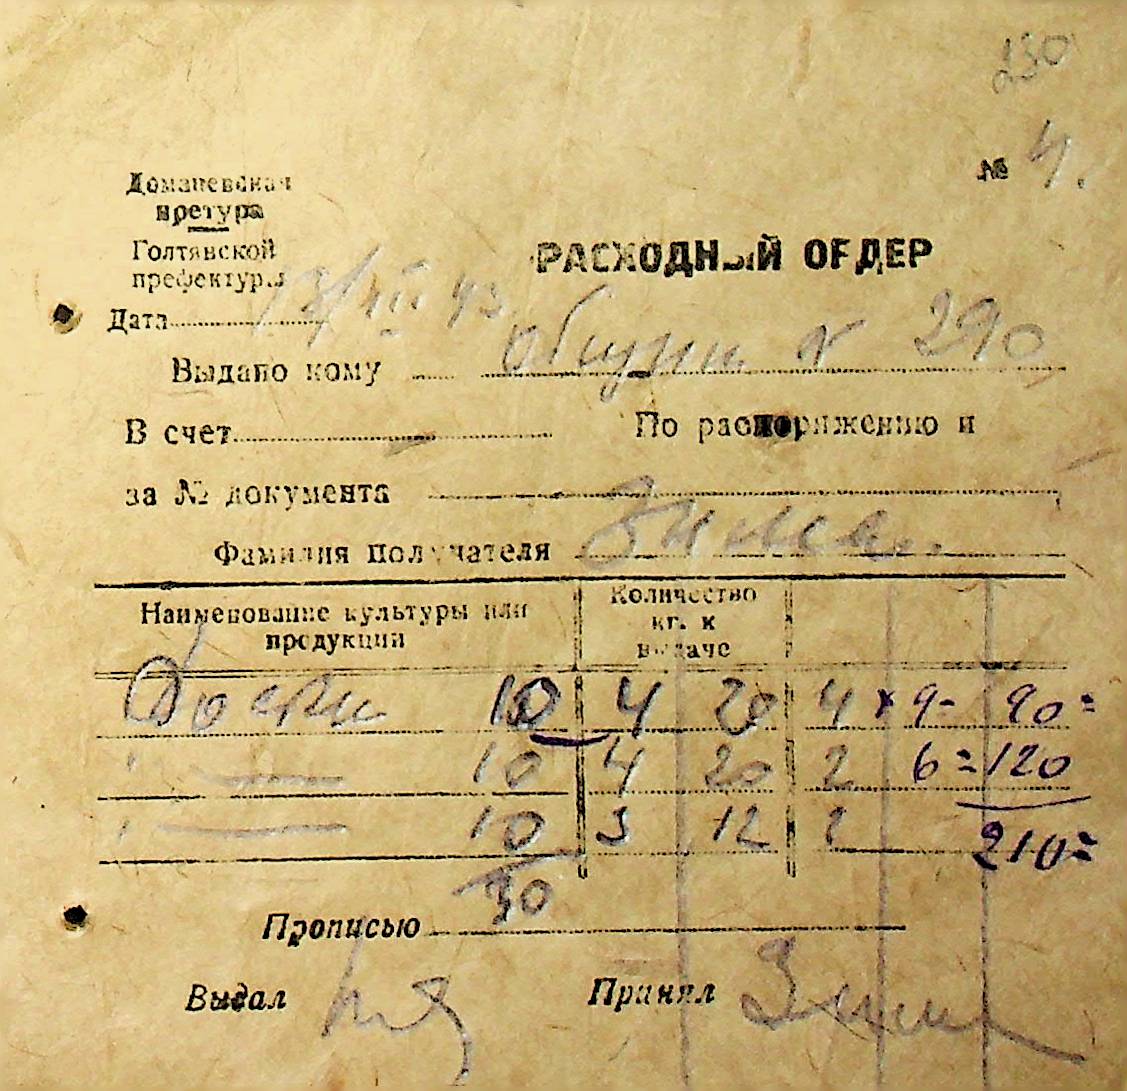 230
№ 4.
Доманевская
претура
Голтянской
префектуры
РАСХОДНЫЙ ОРДЕР
Дата 13/VII 43
Выдано кому № 290
В счет По распоряжению и
за № документа
Фамилия получателя Зима
Наименование культуры или продукции Количество кг. к выдаче
Доски 10 4 20 4 × 9 - 90 =
" — 10 4 20 2 6 = 120
" — 10 3 12 2 210 =
30
Прописью
Выдал Принял Зима